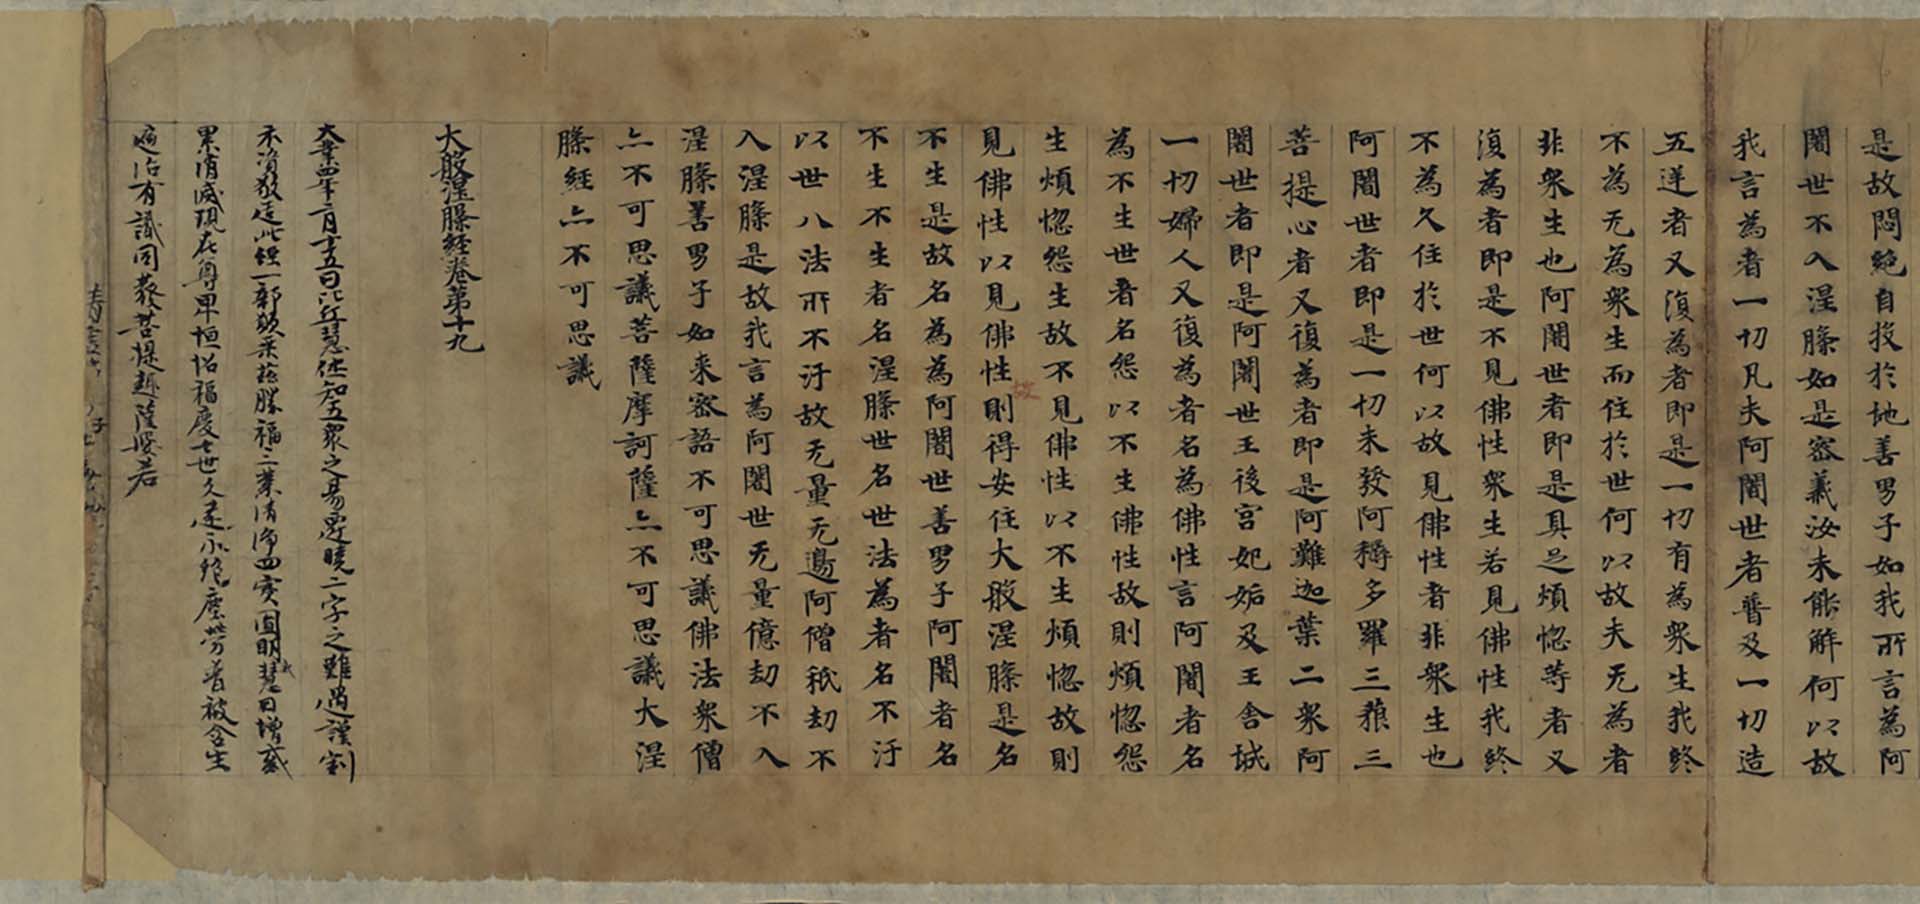 是故悶絕自投於地善男子如我所言為阿
闍世不入涅槃如是密義汝未能解何以故
我言為者一切凡夫阿闍世者普及一切造
五逆者又復為者即是一切有為衆生我終
不為无為衆生而住於世何以故夫无為者
非衆生也阿闍世者即是具足煩惱等者又
復為者即是不見佛性衆生若見佛性我終
不為久住於世何以故見佛性者非衆生也
阿闍世者即是一切未發阿耨多羅三藐三
菩提心者又復為者即是阿難迦葉二衆阿
闍世者即是阿闍世王後宮妃姤及王舍城
一切婦人又復為者名為佛性言阿闍者名
為不生世者名怨以不生佛性故則煩惱怨
生煩惱怨生故不見佛性以不生煩惱故則
見佛性以見佛性故則得安住大般涅槃是名
不生是故名為為阿闍世善男子阿闍者名
不生不生者名涅槃世名世法為者名不汙
以世八法所不汙故无量无邊阿僧祇劫不
入涅槃是故我言為阿闍世无量億劫不入
涅槃善男子如来密語不可思議佛法衆僧
亦不可思議菩薩摩訶薩亦不可思議大涅
槃經亦不可思議
大般涅槃經卷第十九
大業四年二月十五日比丘慧休知五衆之易遷曉二字之難遇謹割
衣資敬造此經一部願乘茲勝福三業清淨四實圓明戒慧日增惑
累消滅現在尊卑恒招福慶七世久遠永絕塵勞普被含生
遍沾有識同發菩提趣薩婆若